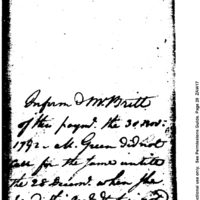 Inform'd Mr Britt
of this paymt. the 30 Nov:
1792 - M. Green did not
call for the same untill
the 28 Decemr. when she
See Permissions Guide. Page 39 ZK417